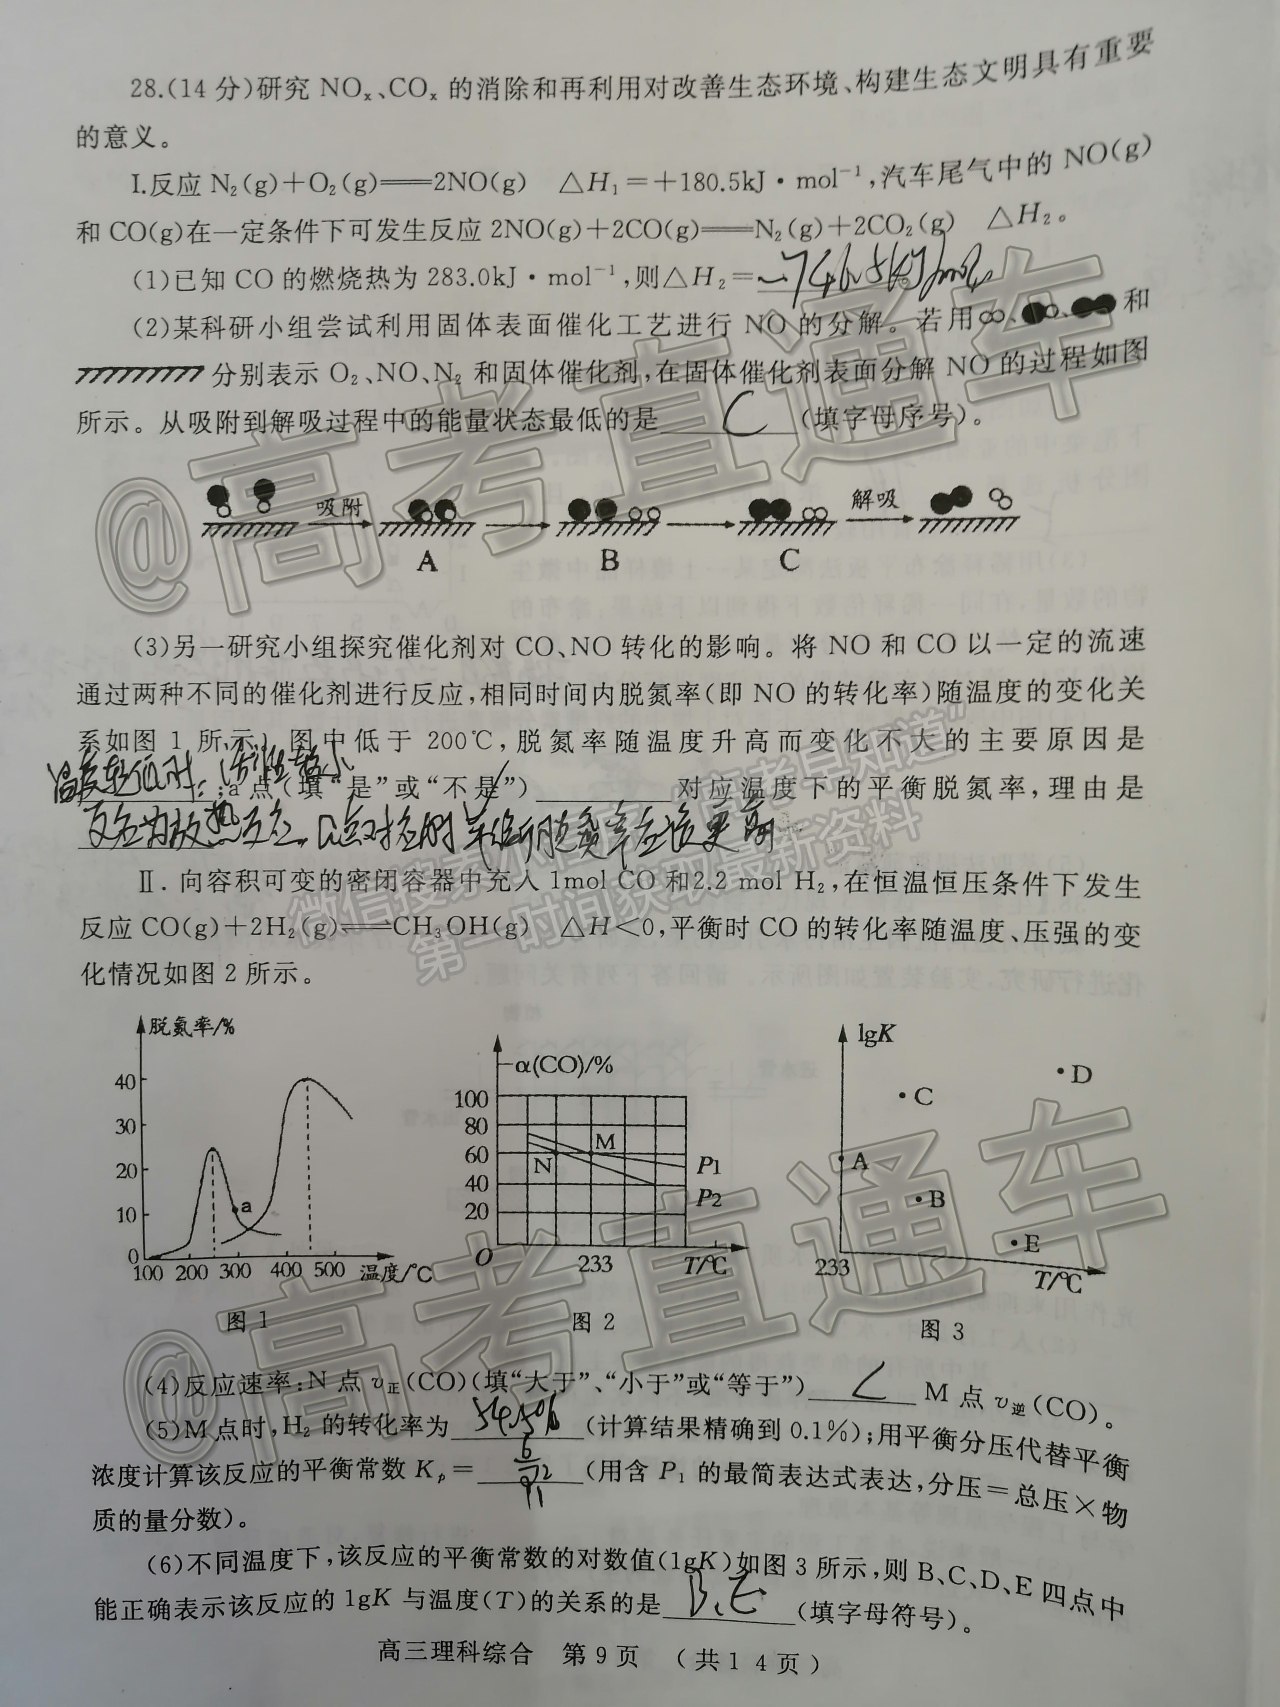 28.(14分)研究 NOₓ、COₓ 的消除和再利用对改善生态环境、构建生态文明具有重要
的意义。
Ⅰ.反应 N₂(g)+O₂(g)═══2NO(g) △H₁=+180.5kJ·mol⁻¹,汽车尾气中的 NO(g)
和 CO(g)在一定条件下可发生反应 2NO(g)+2CO(g)═══N₂(g)+2CO₂(g) △H₂。
(1)已知 CO 的燃烧热为 283.0kJ·mol⁻¹,则△H₂= -746.5kJ/mol。
(2)某科研小组尝试利用固体表面催化工艺进行 NO 的分解。若用 、 、 和
分别表示 O₂、NO、N₂ 和固体催化剂,在固体催化剂表面分解 NO 的过程如图
所示。从吸附到解吸过程中的能量状态最低的是 C (填字母序号)。
吸附 解吸
A B C
(3)另一研究小组探究催化剂对 CO、NO 转化的影响。将 NO 和 CO 以一定的流速
通过两种不同的催化剂进行反应,相同时间内脱氮率(即 NO 的转化率)随温度的变化关
系如图 1 所示。图中低于 200℃,脱氮率随温度升高而变化不大的主要原因是
温度较低时,活性较小 ;a 点(填“是”或“不是”) 对应温度下的平衡脱氮率,理由是
反应为放热反应,a点对应的平衡脱氮率应该更高
Ⅱ. 向容积可变的密闭容器中充入 1mol CO 和2.2 mol H₂,在恒温恒压条件下发生
反应 CO(g)+2H₂(g)⇌CH₃OH(g) △H<0,平衡时 CO 的转化率随温度、压强的变
化情况如图 2 所示。
脱氮率/%
40
30
20
10
0
100 200 300 400 500 温度/℃
a
图 1
α(CO)/%
100
80
60
40
20
O
M
N
P1
P2
233
T/℃
图 2
lgK
D
C
A
B
E
233
T/℃
图 3
(4)反应速率:N 点 υ正(CO)(填“大于”、“小于”或“等于”) < M 点 υ逆(CO)。
(5)M 点时,H₂ 的转化率为 54.5% (计算结果精确到 0.1%);用平衡分压代替平衡
浓度计算该反应的平衡常数 Kₚ= (用含 P₁ 的最简表达式表达,分压=总压×物
质的量分数)。
(6)不同温度下,该反应的平衡常数的对数值(lgK)如图 3 所示,则 B、C、D、E 四点中
能正确表示该反应的 lgK 与温度(T)的关系的是 B、E (填字母符号)。
高三理科综合 第 9 页 (共 1 4 页)
@高考直通车
微信搜索小程序“高考早知道”
第一时间获取最新资料
@高考直通车